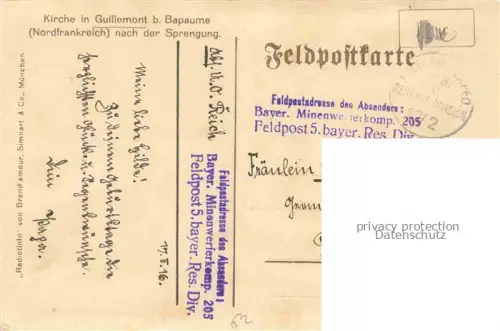 Kirche in Guillemont b. Bapaume
(Nordfrankreich) nach der Sprengung.
Feldpostkarte
Feldpostadresse des Absenders:
Bayer. Minenwerferkomp. 205
Feldpost 5. bayer. Res. Div.
RESERVE DIVISION
Fräulein
Germ
privacy protection
Provided
Abs. U.O. Reich
Feldpostadresse des Absenders:
Bayer. Minenwerferkomp. 205
Feldpost 5. bayer. Res. Div.
17.V.16.
Meine liebe Hilde!
Zu Deinem Geburtstage die
herzlichsten Glück- u. Segenswünsche.
Dein Papa.
"Radiotinto" von Brend'amour, Simhart & Co., München
62